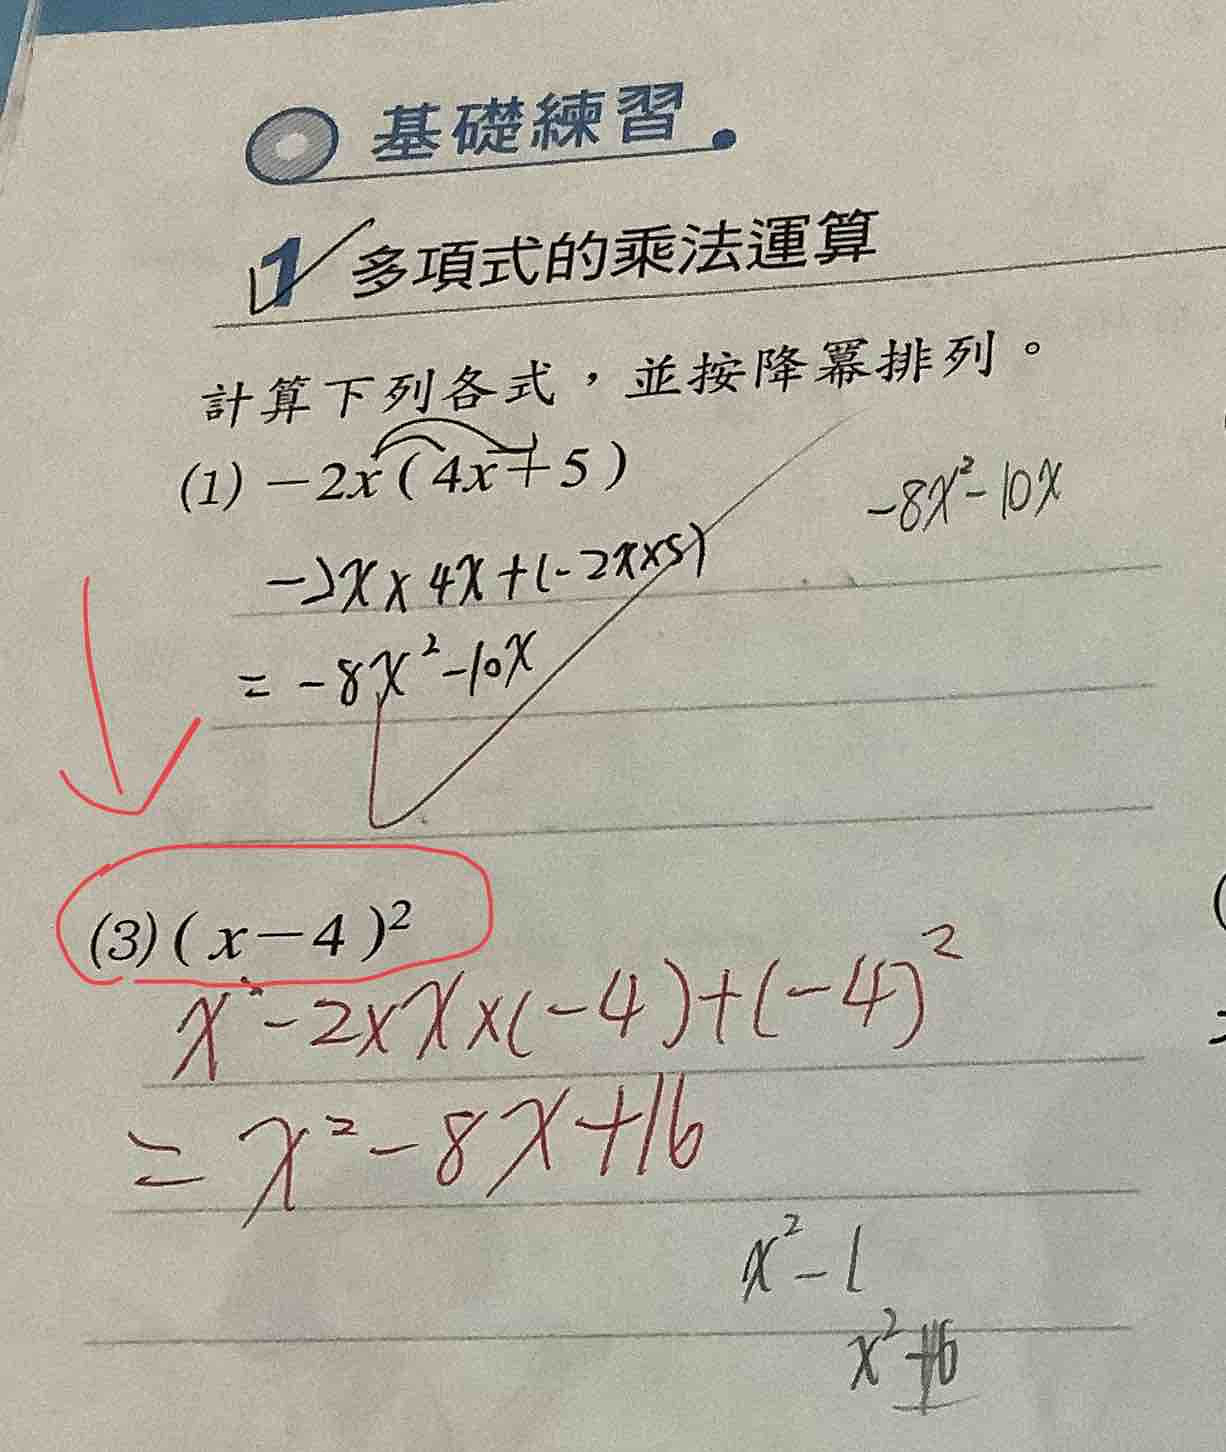 基礎練習
1 多項式的乘法運算
計算下列各式，並按降冪排列。
(1) －2x ( 4x＋5 )
-8x²-10x
-2x×4x+(-2x×5)
= -8x²-10x
(3) ( x－4 )²
x²-2×x×(-4)+(-4)²
= x²-8x+16
x²-1
x²+16